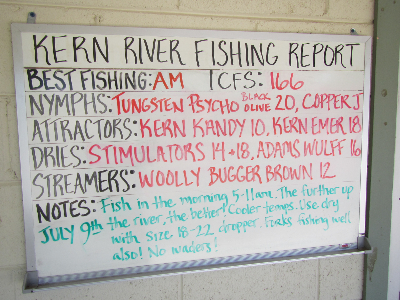 KERN RIVER FISHING REPORT
BEST FISHING: AM CFS: 166
NYMPHS: TUNGSTEN PSYCHO BLACK OLIVE 20, COPPER J
ATTRACTORS: KERN KANDY 10, KERN EMER 18
DRIES: STIMULATORS 14 + 18, ADAMS WULFF 16
STREAMERS: WOOLLY BUGGER BROWN 12
NOTES: Fish in the morning 5-11am. The further up
JULY 9th the river, the better! Cooler temps. Use dry
with size 18-22 dropper. Forks fishing well
also! No waders!